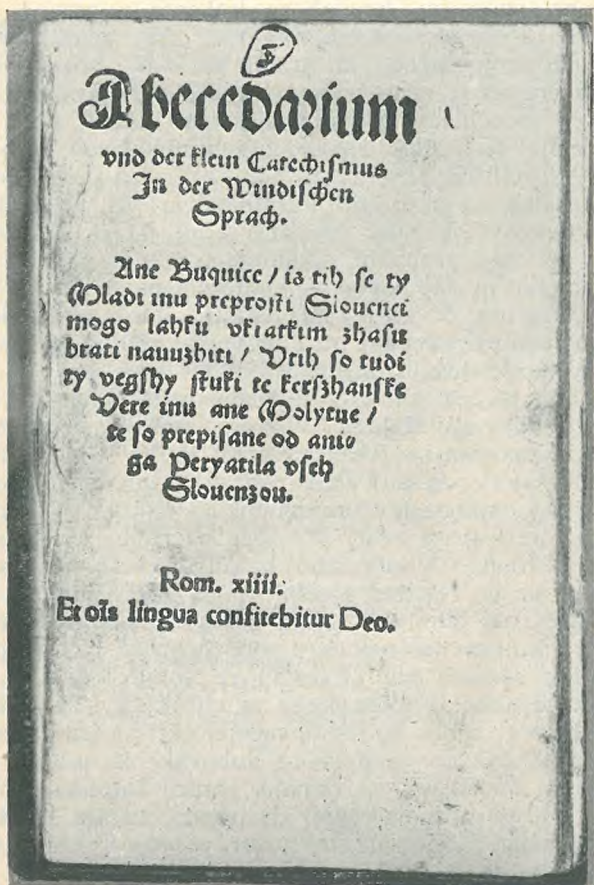 Abecedarium
vnd der klein Catechismus
In der Windischen
Sprach.
Ane Buquice / is tih se ty
Mladi inu preprosti Slouenci
mogo lahku vkratkim zhasu
brati nauuzhiti / Vtih so tudi
ty vegshy stuki te kerszhanske
Vere inu ane Molytue /
te so prepisane od anio
ga Peryatila vseh
Slouenzou.
Rom. xiiii.
Et oīs lingua confitebitur Deo.